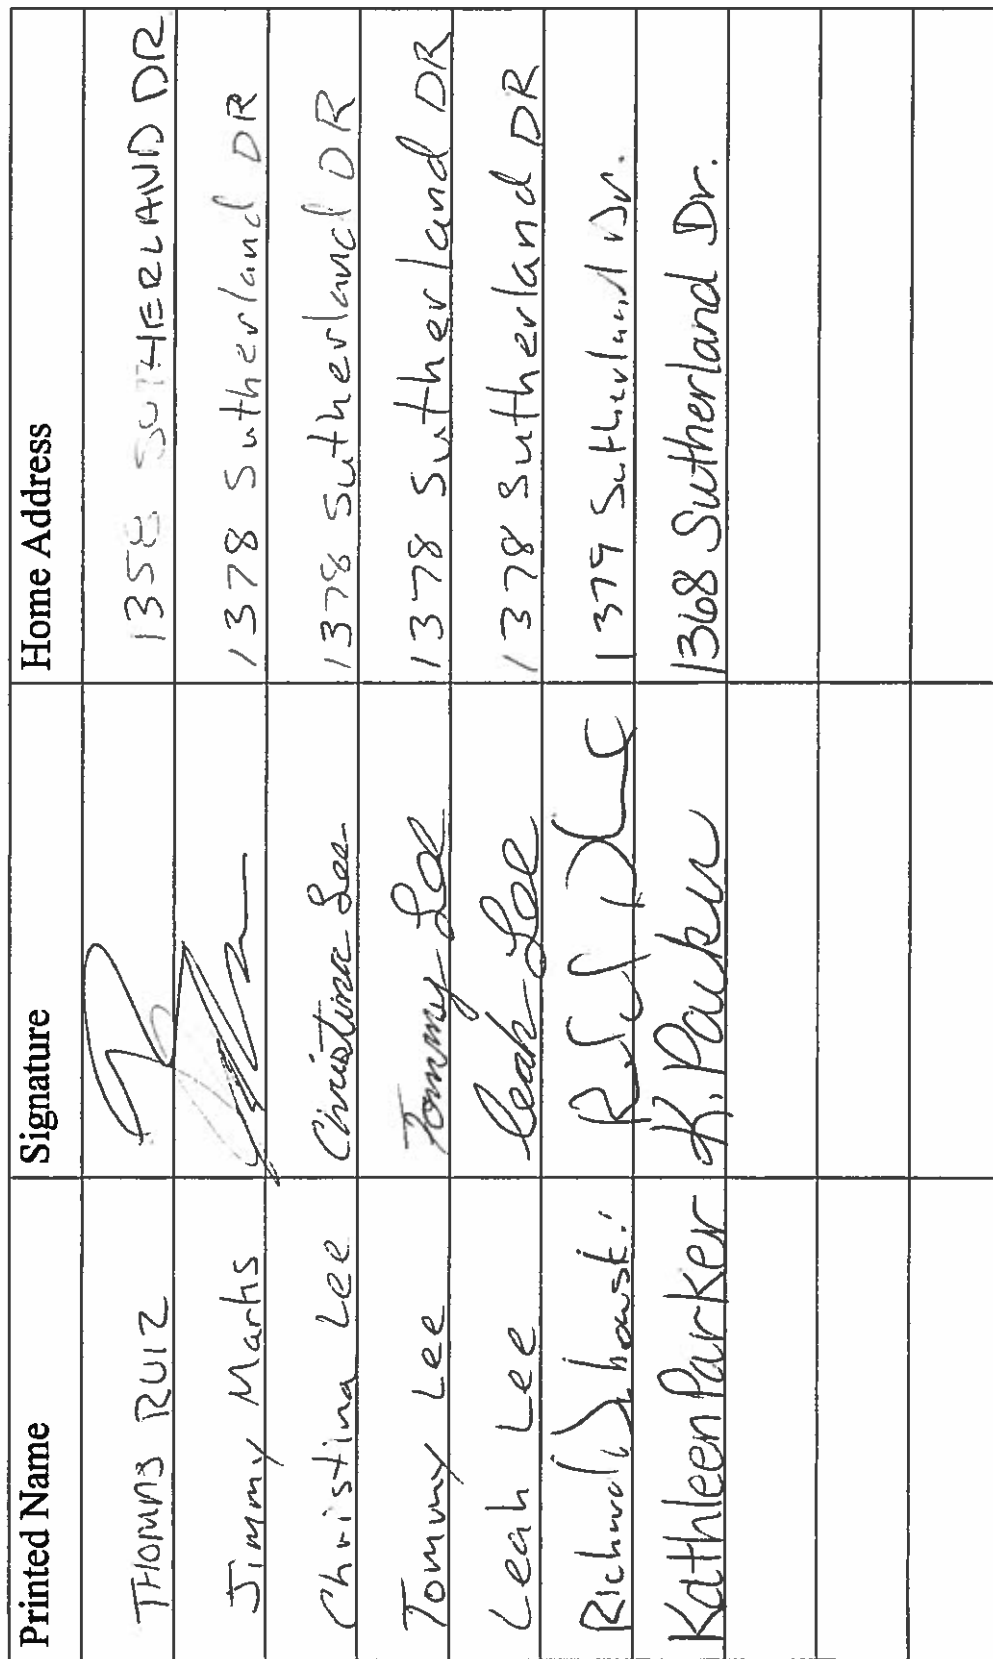 Printed Name Signature Home Address
THOMAS RUIZ 1358 SUTHERLAND DR
Jimmy Martis 1378 Sutherland DR
Christina Lee Christina Lee 1378 Sutherland DR
Tommy Lee Tommy Lee 1378 Sutherland DR
Leah Lee Leah Lee 1378 Sutherland DR
Richard 1379 Sutherland Dr.
Kathleen Parker K. Parker 1368 Sutherland Dr.